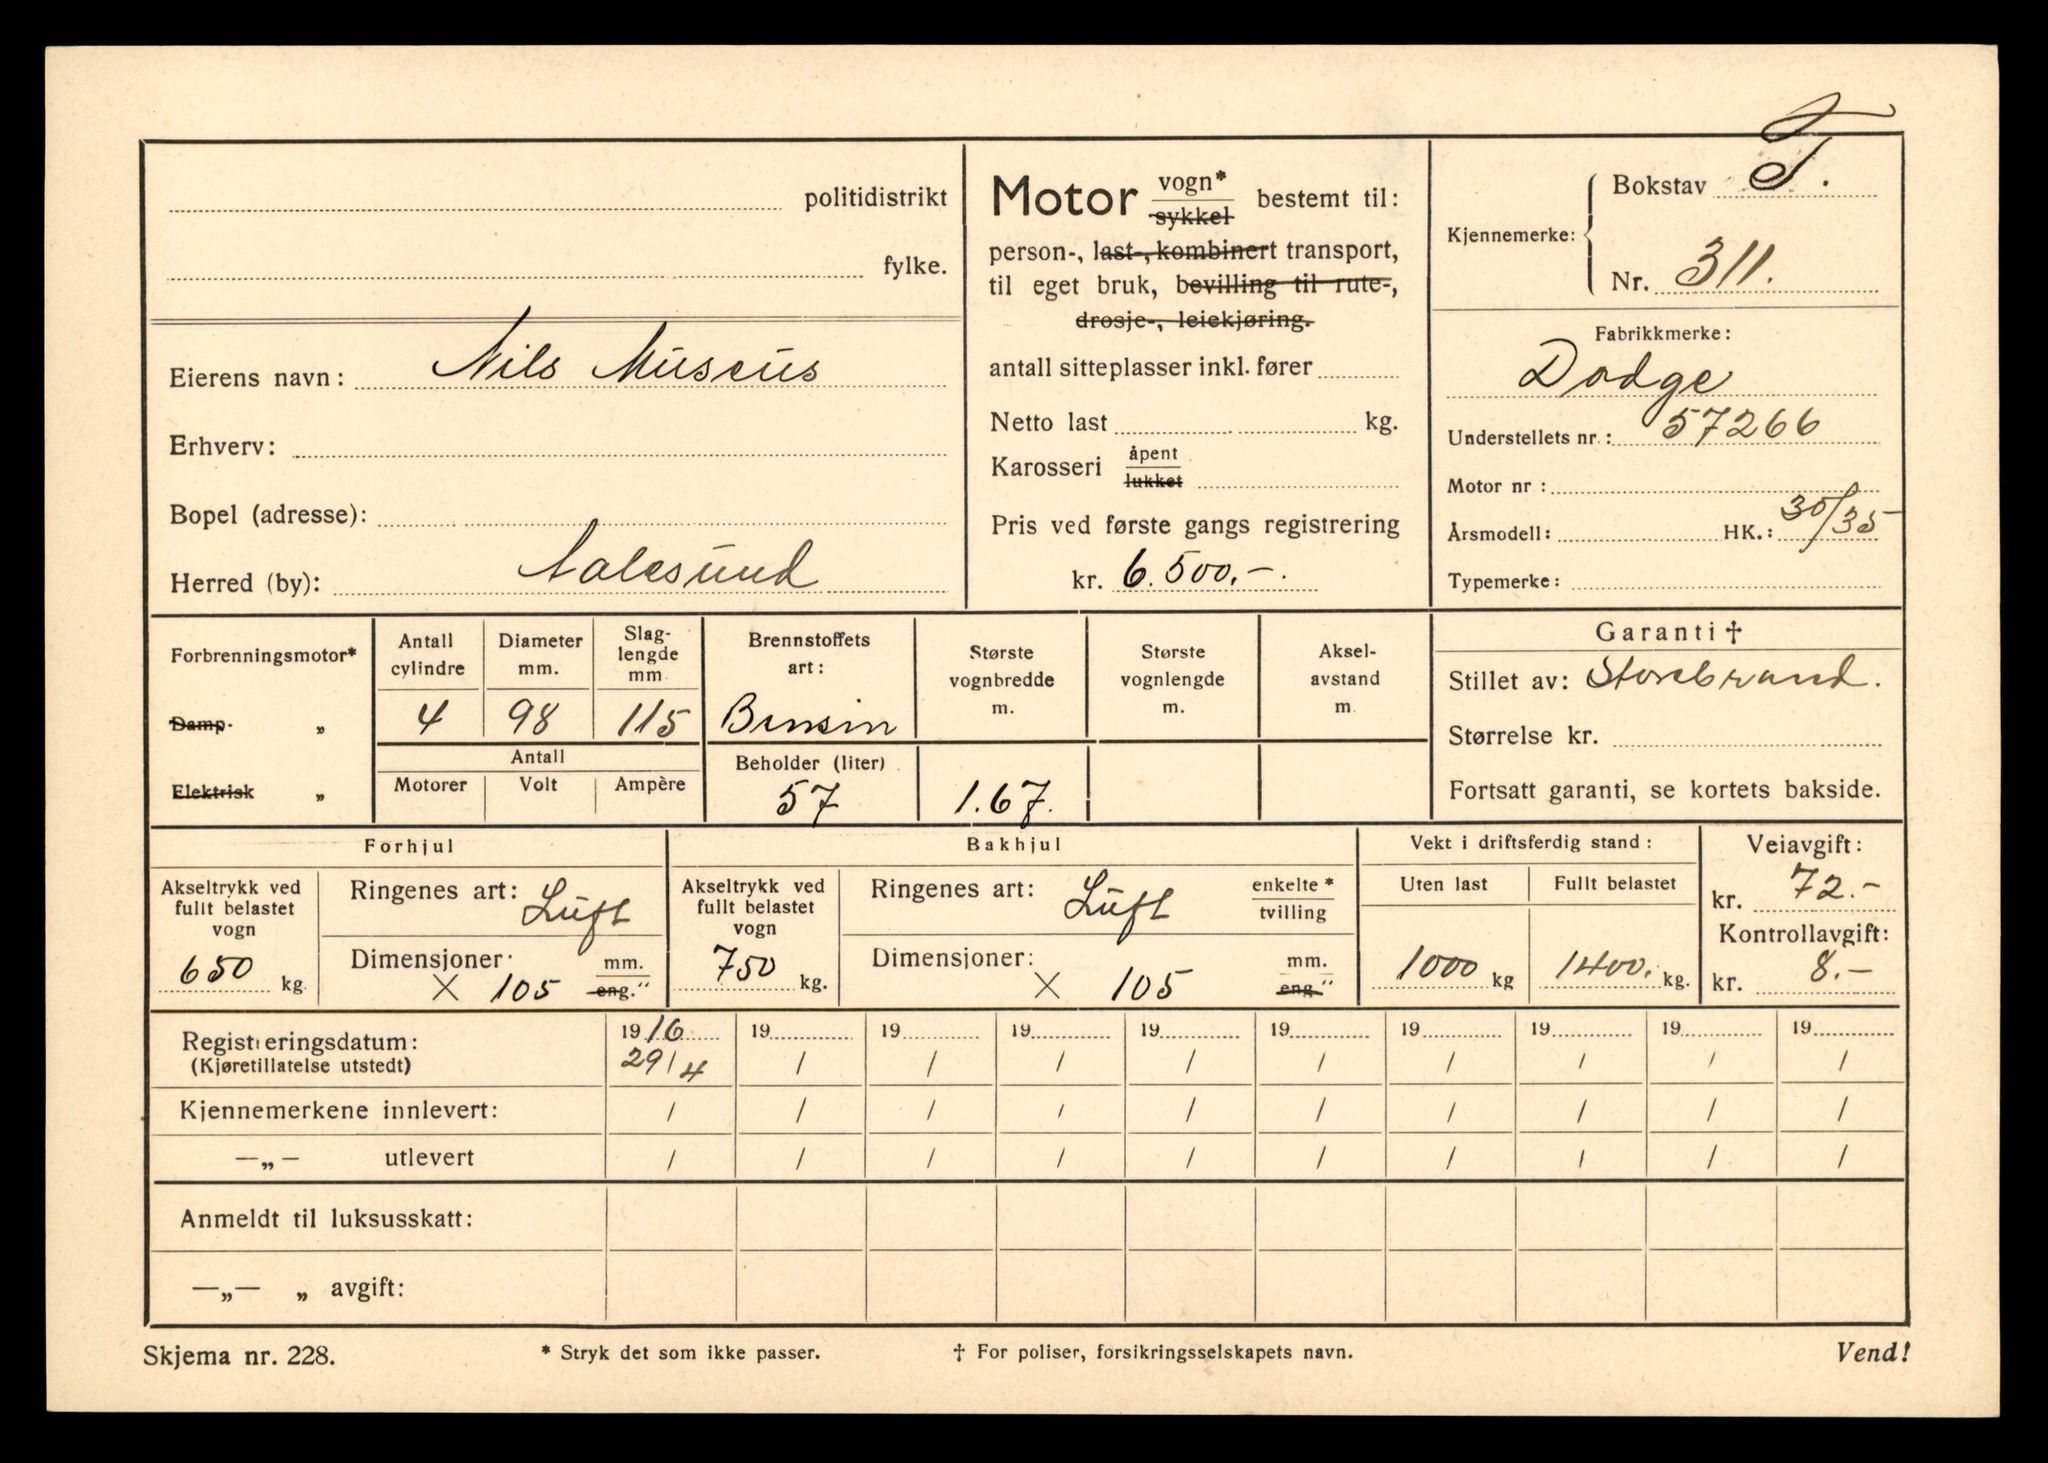 politidistrikt
fylke.
Eierens navn: Nils Museus
Erhverv:
Bopel (adresse):
Herred (by): Aalesund
Motor vogn* sykkel bestemt til:
person-, last-, kombinert transport,
til eget bruk, bevilling til rute-,
drosje-, leiekjøring.
antall sitteplasser inkl. fører
Netto last kg.
Karosseri åpent lukket
Pris ved første gangs registrering
kr. 6.500.-
Kjennemerke: Bokstav T.
Nr. 311.
Fabrikkmerke:
Dodge
Understellets nr.: 57266
Motor nr :
Årsmodell: HK.: 30/35
Typemerke:
Forbrenningsmotor*
Damp- „
Elektrisk „
Antall cylindre
Diameter mm.
Slag-lengde mm
4 98 115
Antall
Motorer Volt Ampère
Brennstoffets art:
Bensin
Beholder (liter)
57
Største vognbredde m.
1.67.
Største vognlengde m.
Aksel-avstand m
Garanti †
Stillet av: Storebrand.
Størrelse kr.
Fortsatt garanti, se kortets bakside.
Forhjul
Akseltrykk ved fullt belastet vogn
650 kg.
Ringenes art: Luft
Dimensjoner: × 105 mm. eng."
Bakhjul
Akseltrykk ved fullt belastet vogn
750 kg.
Ringenes art: Luft enkelte* tvilling
Dimensjoner: × 105 mm. eng."
Vekt i driftsferdig stand:
Uten last Fullt belastet
1000 kg 1400. kg.
Veiavgift:
kr. 72.-
Kontrollavgift:
kr. 8.-
Registreringsdatum: 1916 19 19 19 19 19 19 19 19 19
(Kjøretillatelse utstedt) 29/4 / / / / / / / / /
Kjennemerkene innlevert: / / / / / / / / / /
—„— utlevert / / / / / / / / / /
Anmeldt til luksusskatt:
—„— „ avgift:
Skjema nr. 228. * Stryk det som ikke passer. † For poliser, forsikringsselskapets navn. Vend!